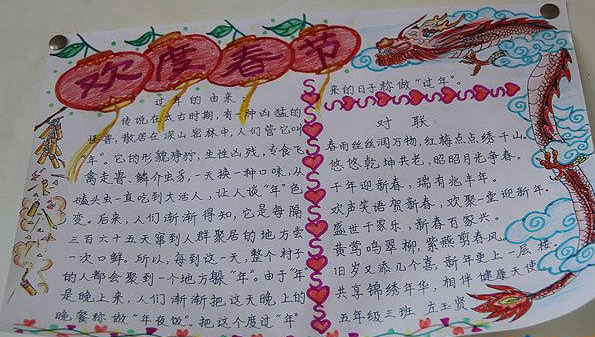 欢度春节
过年的由来:
传说在太古时期,有一种凶猛的
怪兽,散居在深山密林中,人们管它叫
“年”。它的形貌狰狞,生性凶残,专食飞
禽走兽、鳞介虫豸,一天换一种口味,从
磕头虫一直吃到大活人,让人谈“年”色
变。后来,人们渐渐得知,它是每隔
三百六十五天窜到人群聚居的地方尝
一次口鲜。所以,每到这一天,整个村子
的人都会聚到一个地方躲“年”。由于“年”
是晚上来,人们渐渐把这天晚上的
晚餐称做“年夜饭”。把这个度过“年”
来的日子称做“过年”。
对联:
春雨丝丝润万物,红梅点点绣千山,
悠悠乾坤共老,昭昭日月争春。
千年迎新春,瑞有兆丰年。
欢声笑语贺新春,欢聚一堂迎新年,
盛世千家乐,新春百家兴。
黄莺鸣翠柳,紫燕剪春风。
旧岁又添几个喜,新年更上一层楼。
共享锦绣年华,相伴健康天使
五年级三班 左玉贤